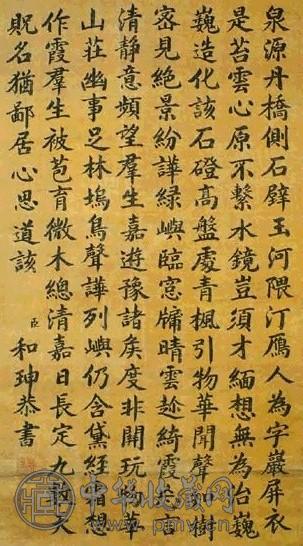 泉源丹橋側石壁玉河隈汀鴈人為字巖屏衣
是苔雲心原不繫水鏡豈須才緬想無為台巍
巍造化該石磴高盤處青楓引物華聞聲知樹
密見絕景紛譁綠嶼臨窓牖晴雲趂綺霞
清靜意頻望羣生嘉遊豫諸矦度非關玩物華
山莊幽事足林塢鳥聲譁列嶼仍含黛經眉想
作霞羣生被苞育微木總清嘉日長定九人
貺名猶鄙居心思道該
臣和珅恭書
中华收藏网